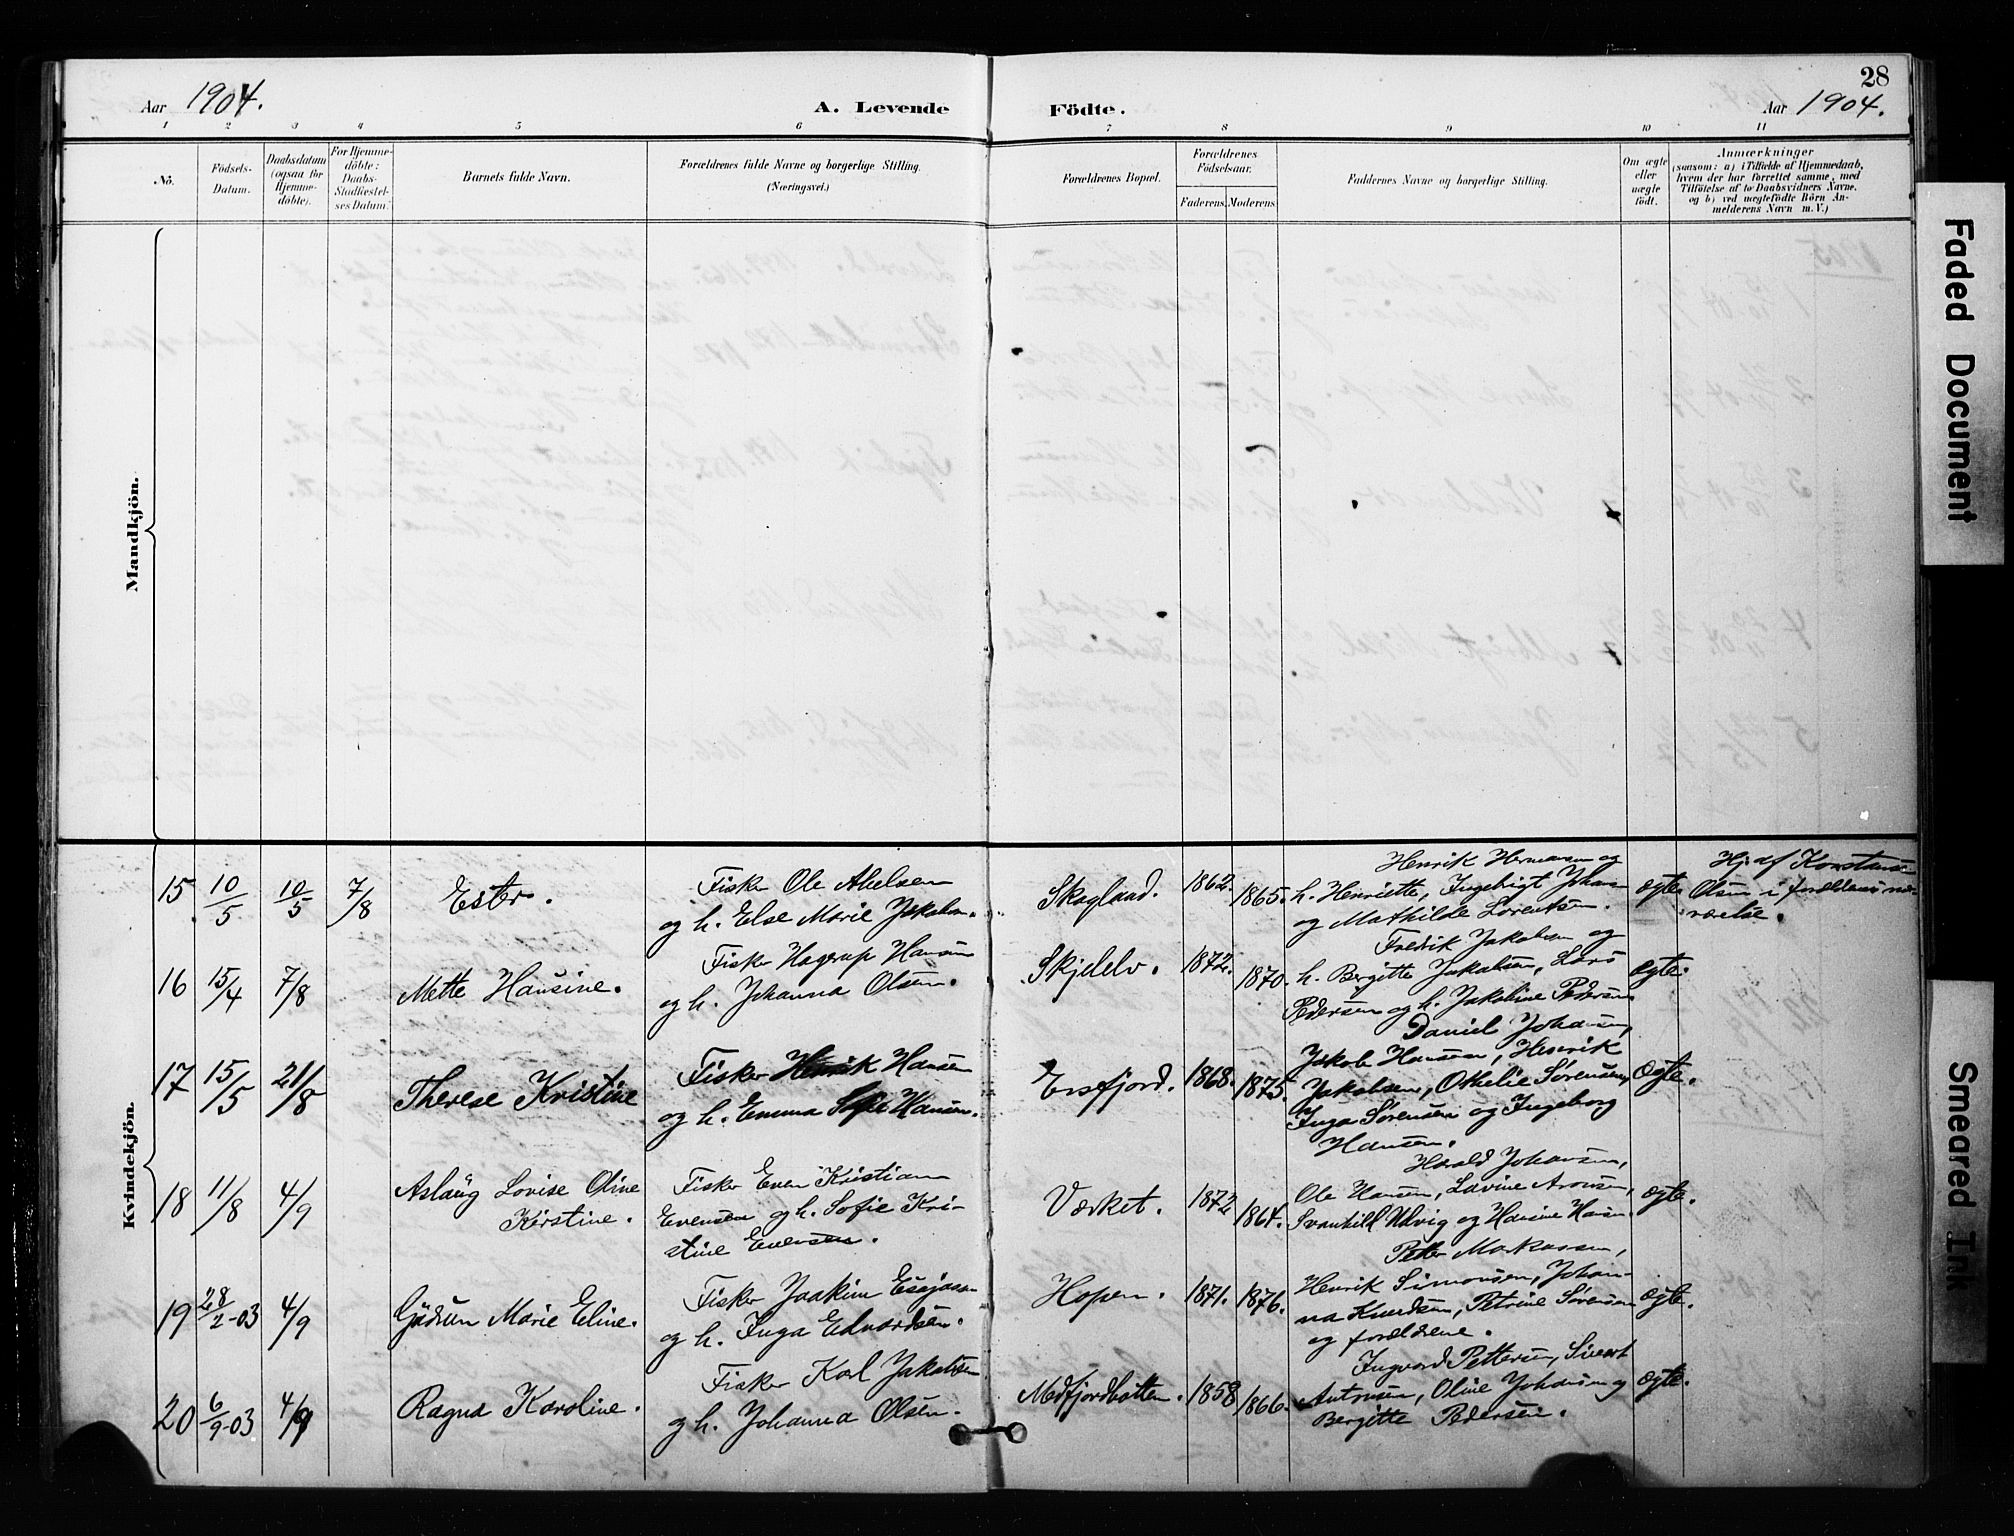 28
Aar 1904.
A. Levende Födte.
Aar 1904.
1 2 3 4 5 6 7 8 9 10 11
No.
Födsels-
Datum.
Daabsdatum
(ogsaa for
Hjemme-
döbte).
For Hjemme-
döbte:
Daabs-
Stadfæstel-
ses Datum.
Barnets fulde Navn.
Forældrenes fulde Navne og borgerlige Stilling.
(Næringsvei.)
Forældrenes Bopæl.
Forældrenes
Födselsaar.
Faderens. Moderens.
Faddernes Navne og borgerlige Stilling.
Om ægte
eller
uægte
födt.
Anmærkninger
(saasom: a) i Tilfælde af Hjemmedaab,
hvem der har forrettet samme, med
Tilföielse af to Daabsvidners Navne,
og b) ved uægtefödte Börn An-
melderens Navn m. V.)
Mandkjön.
Kvindekjön.
15 10/5 10/5 7/8 Ester.
Fisker Ole Abelsen
og h. Else Marie Jakobsen.
Skogland. 1862. 1865.
Henrik Hermansen og
h. Henriette, Ingebrigt Johan-
og Mathilde Lorentsen.
ægte.
Hj. af Konstanse
Olsen i forældrenes nær-
værelse.
16 15/4 7/8 Mette Hansine.
Fisker Hagerup Hansen
og h. Johanna Olsen.
Skjelelv. 1872. 1870.
Fredrik Jakobsen og
h. Bergitte Jakobsen, Lars
Pedersen og h. Jakobine Pedersen
ægte.
17 15/5 21/8 Therese Kristine
Fisker Henrik Hansen
og h. Emma Sofie Hansen.
Ersfjord. 1868. 1875.
Daniel Johansen,
Jakob Hansen, Henrik
Jakobsen, Othelie Sørensen,
Inga Sørensen og Ingeborg
Hansen.
ægte.
18 11/8 4/9 Aslaug Lovise Oline
Kirstine.
Fisker Even Kristian
Evensen og h. Sofie Kri-
stine Evensen.
Værket. 1872 1864.
Harald Johansen,
Ole Hansen, Lovine Aronsen,
Svanhild Udvig og Hansine Hansen.
ægte.
19 28/2-03 4/9 Gudrun Marie Eline.
Fisker Joakim Esajasen
og h. Inga Edvardsen.
Hopen. 1871. 1876.
Peter Markussen,
Henrik Simonsen, Johan-
na Knudsen, Petrine Sørensen
og forældrene.
ægte.
20 6/9-03 4/9 Ragna Karoline.
Fisker Karl Jakobsen
og h. Johanna Olsen.
Medfjordbotten. 1858 1866.
Ingvard Pettersen, Sivert
Antonsen, Oline Johansen og
Bergitte Pedersen.
ægte.
Faded Document
Smeared Ink